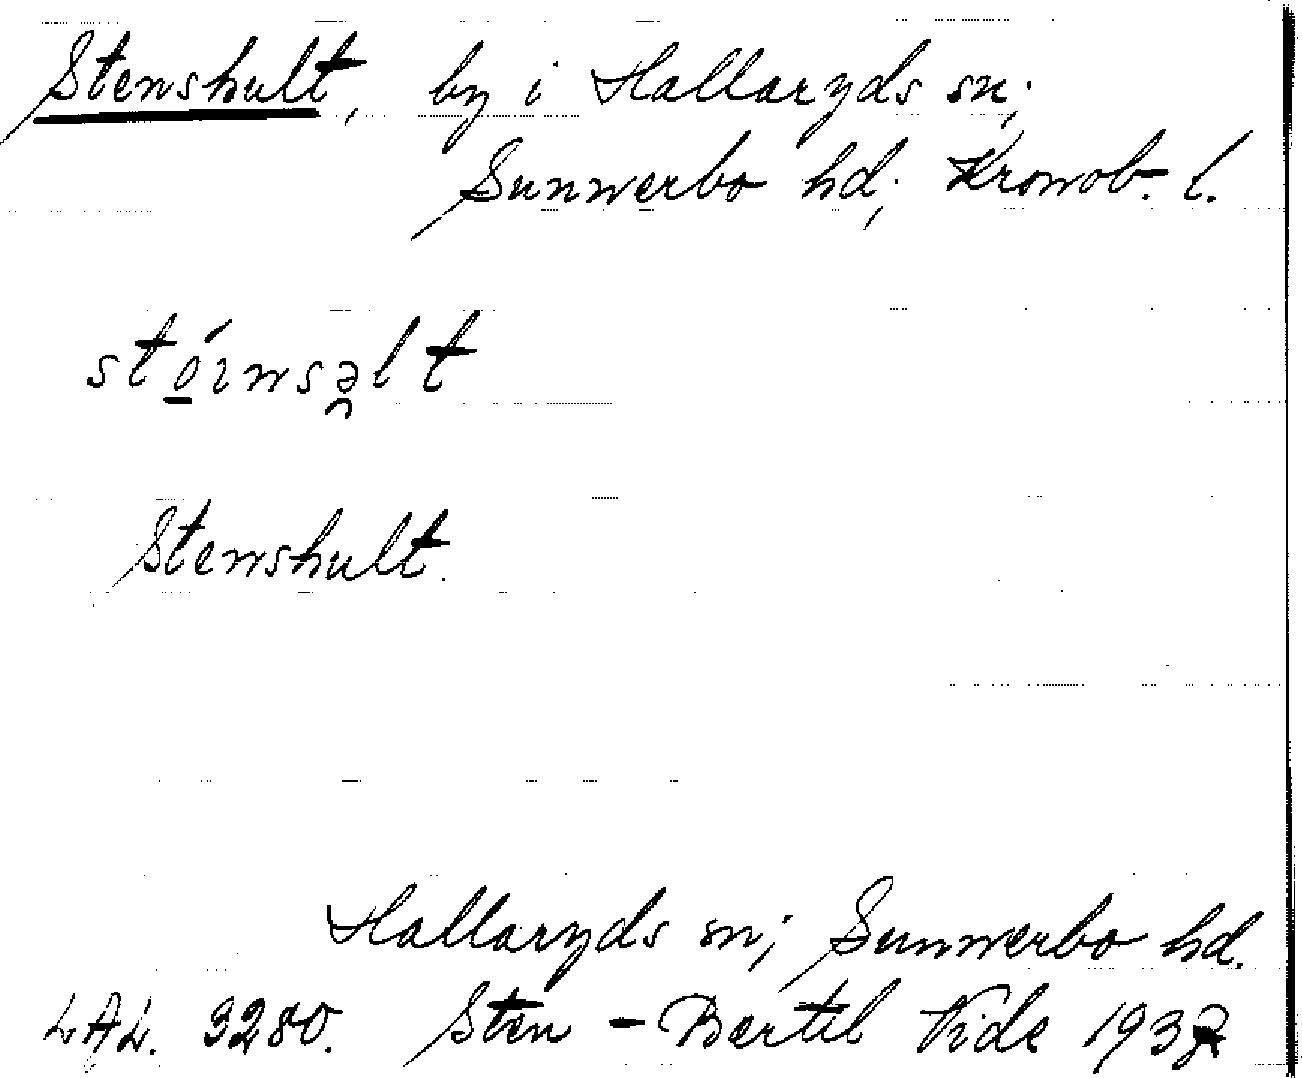 Stenshult, by i Hallaryds sn;
Sunnerbo hd; Kronob. l.
stó̲ɪnsə̯lt
Stenshult.
Hallaryds sn; Sunnerbo hd.
LAL. 3280. Sten-Bertil Vide